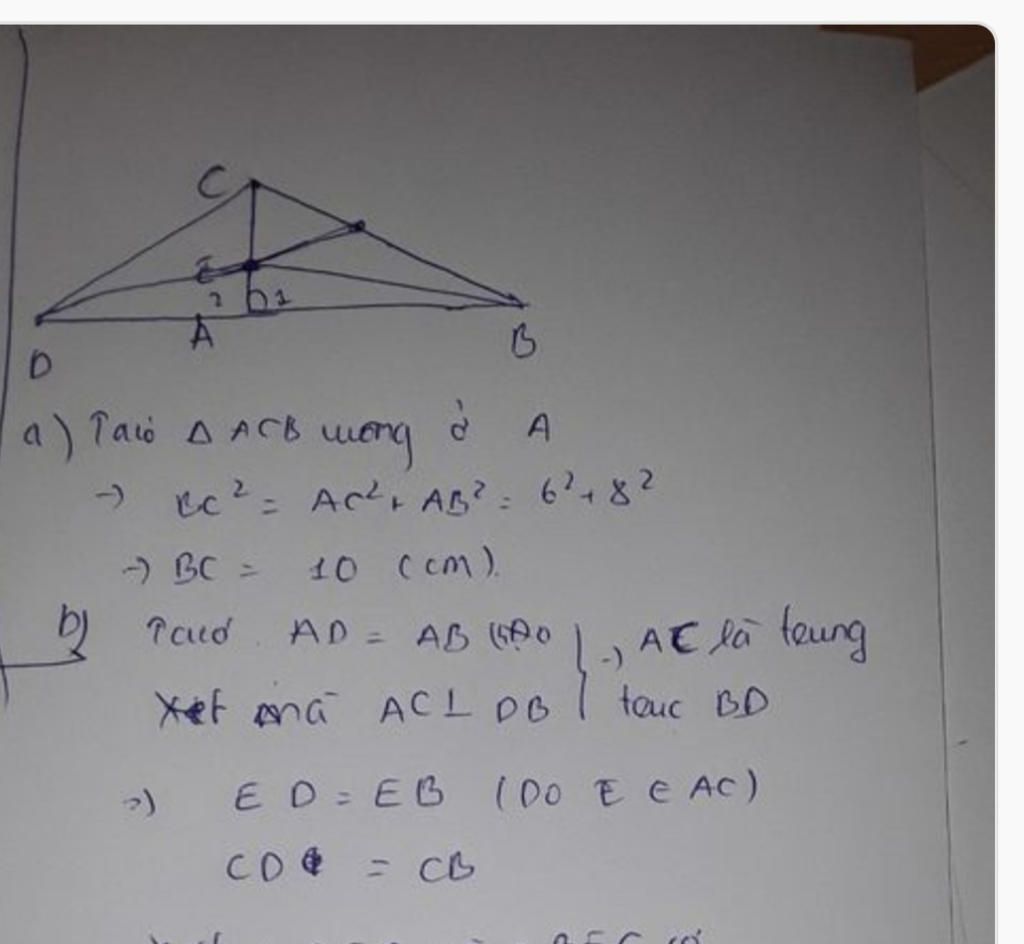 C
E
2 1
A
D
B
a) Ta có Δ ACB vuông ở A
→ BC² = AC² + AB² = 6² + 8²
→ BC = 10 (cm).
b) Ta có AD = AB → AC là trung
mà AC ⊥ DB trực BD
=) ED = EB (Do E ∈ AC)
CD = CB